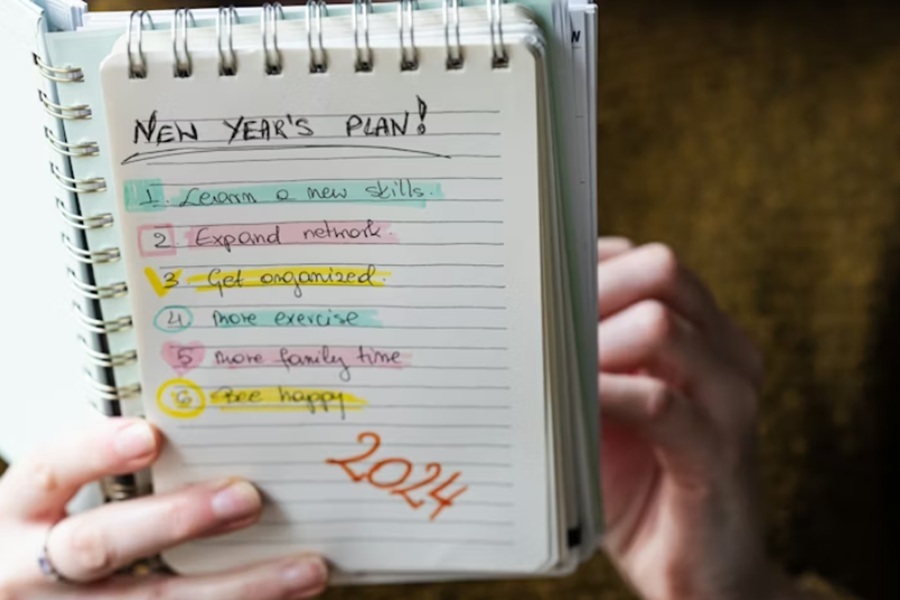 NEW YEAR'S PLAN!
1. Learn a new skills.
2. Expand network
3 Get organized.
4 more exercise
5 more family time
6 Bee happy
2024
N